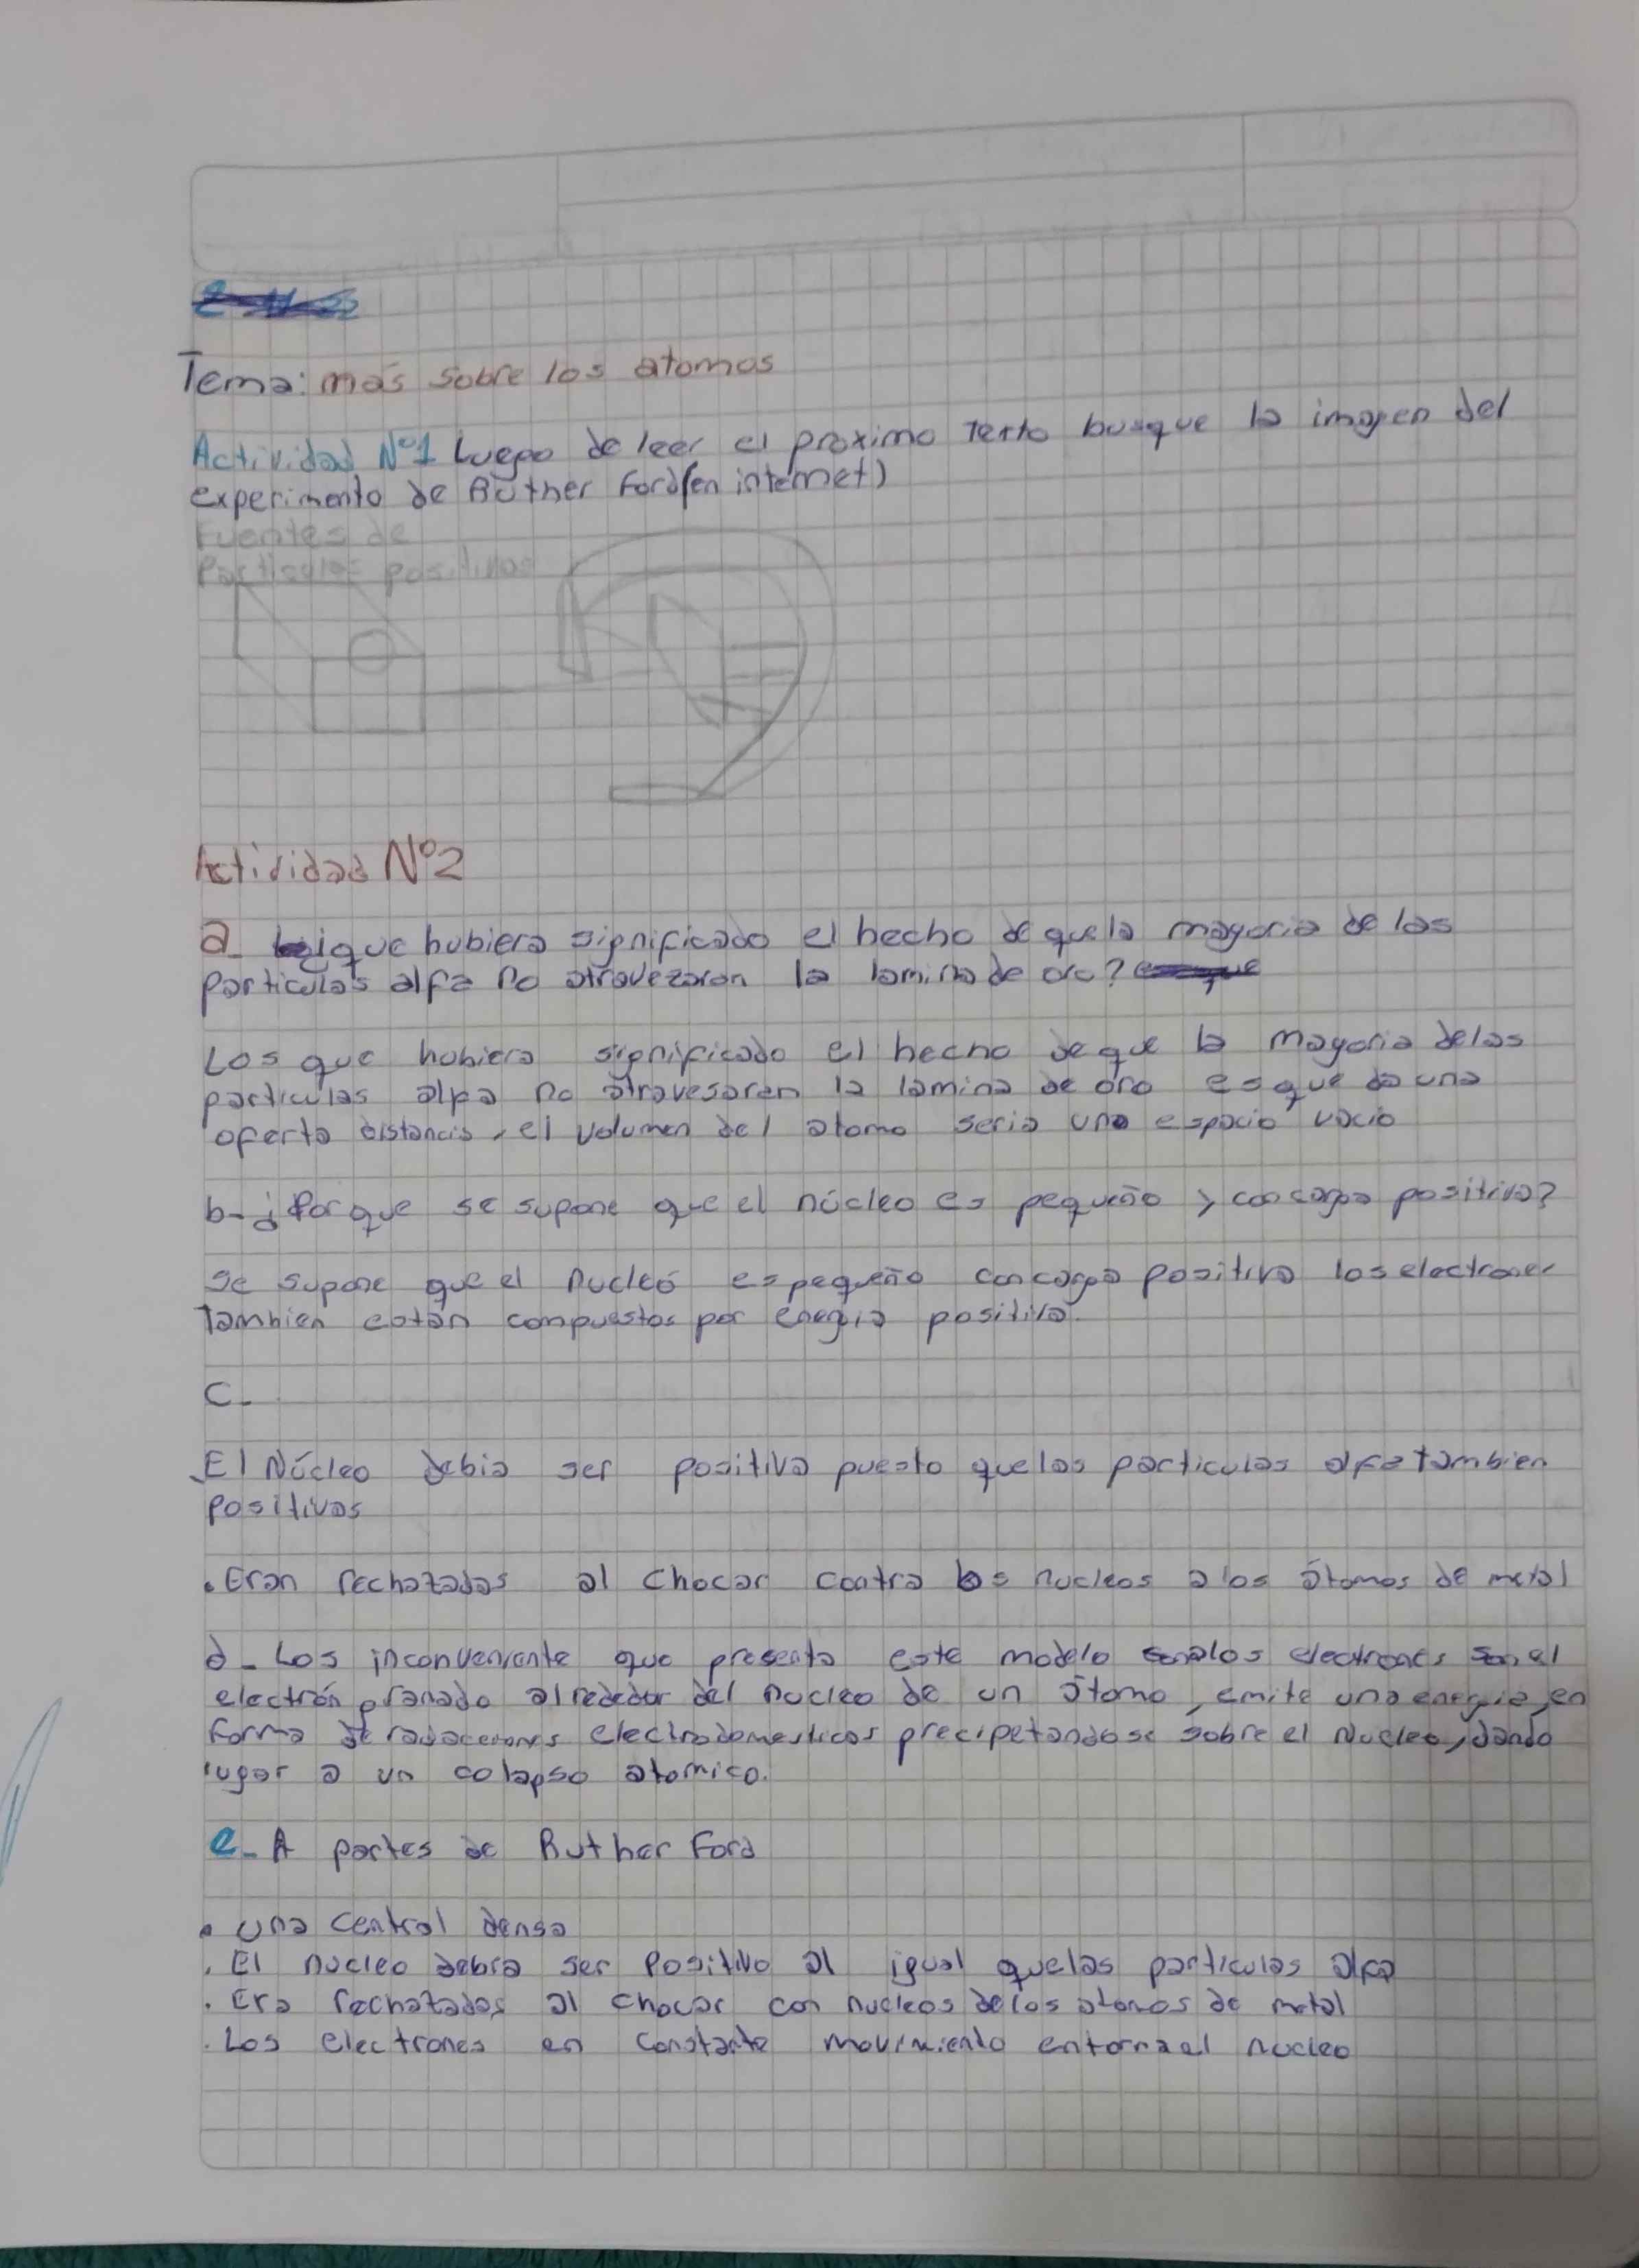 Tema: más sobre los atomos
Actividad N°1 Luego de leer el proximo Texto busque la imagen del
experimento de Ruther Ford (en internet)
Fuentes de
Particulas positivas
Actividad N°2
a- ¿que hubiera significado el hecho de que la mayoria de las
particulas alfa no atravezaran la lamina de oro?
Los que hubiera significado el hecho de que la mayoria de las
particulas alfa no atravesaran la lamina de oro es que da una
oferta distancia, el volumen del atomo seria una espacio vacio
b- ¿Por que se supone que el núcleo es pequeño y con carga positiva?
Se supone que el nucleó es pequeño con carga positiva los electrones
Tambien están compuestos por energia positiva.
C-
El Núcleo debia ser positiva puesto que las particulas alfa tambien
positivas
. Eran rechazadas al chocar contra los nucleos a los átomos de metal
d- Los inconveniente que presenta este modelo los electrones son el
electrón alrededor del nucleo de un átomo, emite una energia, en
forma de electrodomesticas precipetandose sobre el Nucleo, dando
lugar a un colapso atomico.
e- A partes de Ruther Ford
. una central densa
. El nucleo debra ser Positivo al igual que las particulas alfa
. Era rechazadas al chocar con nucleos de los atomos de metal
. Los electrones en constante movimiento entorna el nucleo